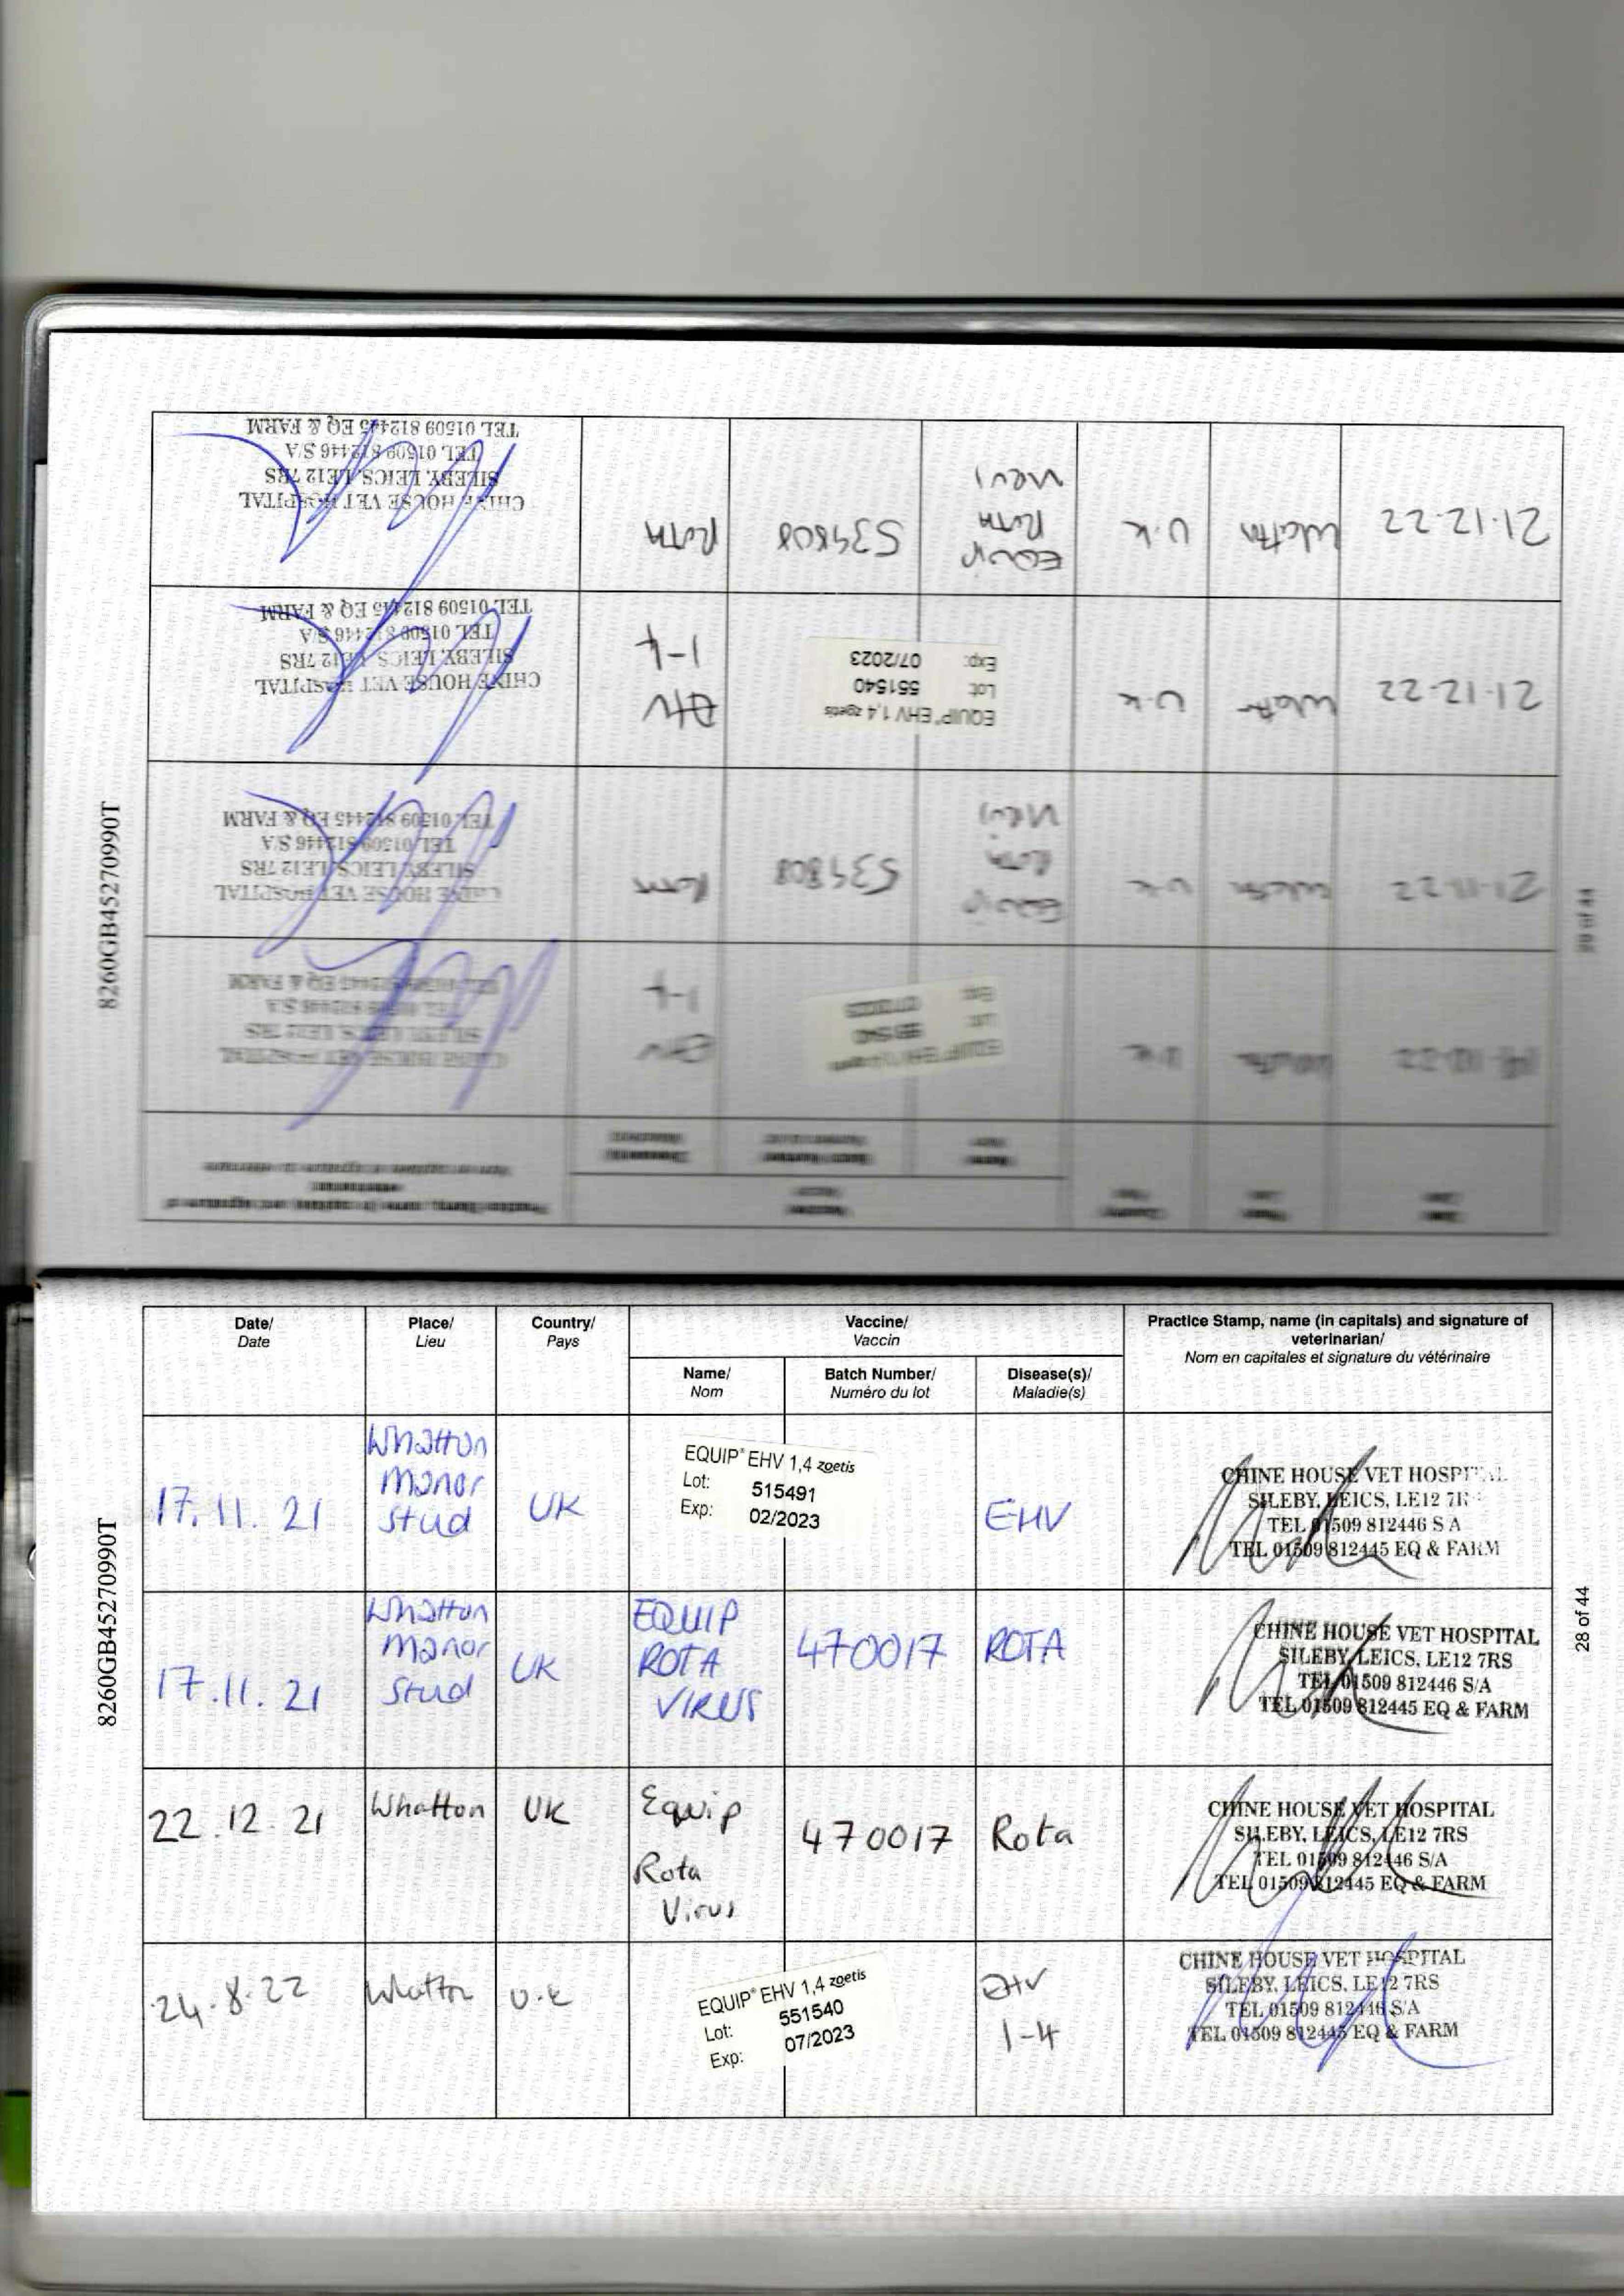 8260GB45270990T
28 of 44
Date/ Place/ Country/ Vaccine/ Practice Stamp, name (in capitals) and signature of
Date Lieu Pays Vaccin veterinarian/
Nom en capitales et signature du vétérinaire
Name/ Batch Number/ Disease(s)/
Nom Numéro du lot Maladie(s)
17.11.21
Whatton
Manor
Stud
UK
EQUIP® EHV 1,4 zoetis
Lot: 515491
Exp: 02/2023
EHV
CHINE HOUSE VET HOSPITAL
SILEBY, LEICS, LE12
TEL 01509 812446 S A
TEL 01509 812445 EQ & FARM
17.11.21
Whatton
Manor
Stud
UK
EQUIP
ROTA
VIRUS
470017
ROTA
CHINE HOUSE VET HOSPITAL
SILEBY, LEICS, LE12 7RS
TEL 01509 812446 S/A
TEL 01509 812445 EQ & FARM
22.12.21
Whatton
UK
Equip
Rota
Virus
470017
Rota
CHINE HOUSE VET HOSPITAL
SILEBY, LEICS, LE12 7RS
TEL 01509 812446 S/A
TEL 01509 812445 EQ & FARM
24.8.22
Whatton
U.K
EQUIP® EHV 1,4 zoetis
Lot: 551540
Exp: 07/2023
EHV
1-4
CHINE HOUSE VET HOSPITAL
SILEBY, LEICS, LE12 7RS
TEL 01509 812446 S/A
TEL 01509 812445 EQ & FARM
8260GB45270990T
U.K
EQUIP® EHV 1,4
551540
EHV
1-4
CHINE HOUSE VET HOSPITAL
SILEBY, LEICS, LE12 7RS
TEL 01509 812446 S/A
TEL 01509 812445 EQ & FARM
21.11.22
Whatton
U.K
EQUIP
ROTA
534808
ROTA
CHINE HOUSE VET HOSPITAL
SILEBY, LEICS, LE12 7RS
TEL 01509 812446 S/A
TEL 01509 812445 EQ & FARM
21.12.22
Whatton
U.K
EQUIP® EHV 1,4 zoetis
Lot: 551540
Exp: 07/2023
EHV
1-4
CHINE HOUSE VET HOSPITAL
SILEBY, LEICS, LE12 7RS
TEL 01509 812446 S/A
TEL 01509 812445 EQ & FARM
21.12.22
Whatton
U.K
EQUIP
ROTA
534808
ROTA
CHINE HOUSE VET HOSPITAL
SILEBY, LEICS, LE12 7RS
TEL 01509 812446 S/A
TEL 01509 812445 EQ & FARM